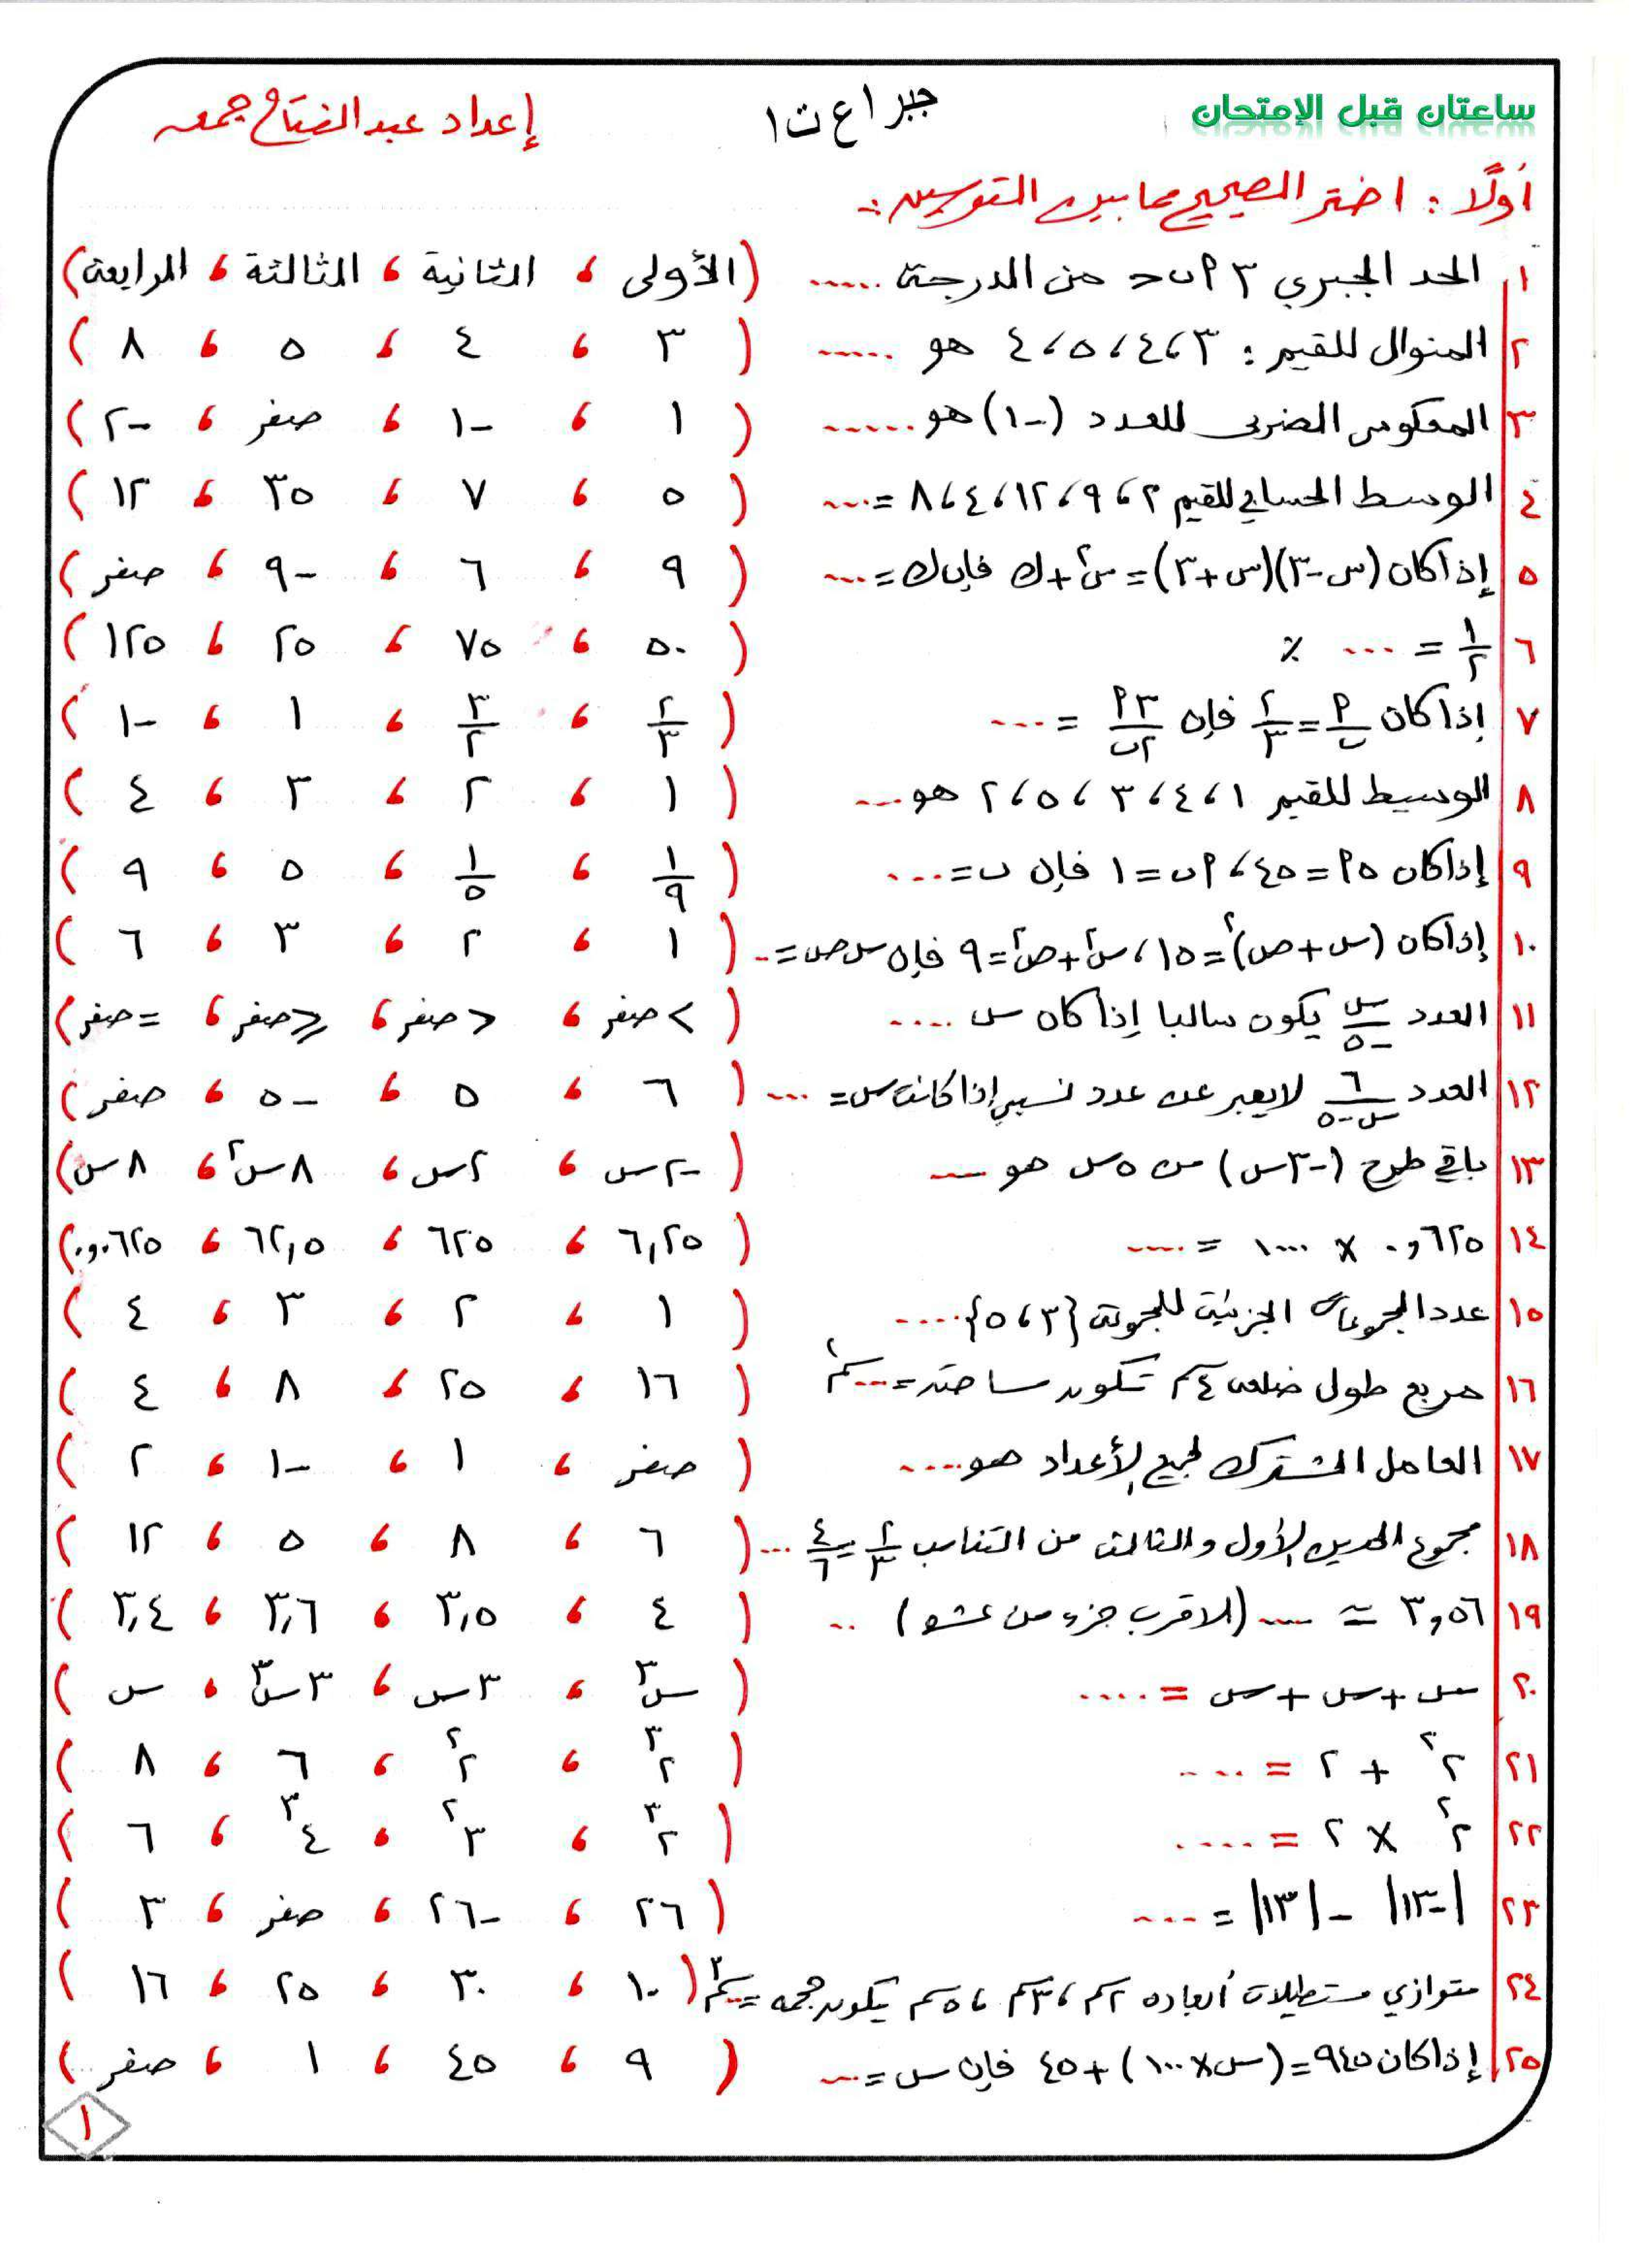 ساعتان قبل الإمتحان جبر ١ع ت١ إعداد عبد الفتاح جمعه
أولًا : اختر الصحيح مما بين القوسين :-
١ الحد الجبري ٣ ٢ب٢ من الدرجة ..... (الأولى ، الثانية ، الثالثة ، الرابعة)
٢ المنوال للقيم : ٣ ، ٤ ، ٥ ، ٤ هو ...... ( ٣ ، ٤ ، ٥ ، ٨ )
٣ المعكوس الضربى للعدد (-١) هو ...... ( ١ ، -١ ، صفر ، -٢ )
٤ الوسط الحسابي للقيم ٢ ، ٩ ، ١٢ ، ٤ ، ٨ = .... ( ٥ ، ٧ ، ٣٥ ، ١٢ )
٥ إذا كان (س-٣)(س+٣) = س٢ + ك فإن ك = .... ( ٩ ، ٦ ، -٩ ، صفر )
٦ ١/٢ = .... ٪ ( ٥٠ ، ٧٥ ، ٢٥ ، ١٢٥ )
٧ إذا كان ٢/ب = ٢/٣ فإن ٢٣/٢ب = .... ( ٢/٣ ، ٣/٢ ، ١ ، -١ )
٨ الوسيط للقيم ١ ، ٤ ، ٣ ، ٥ ، ٢ هو .... ( ١ ، ٢ ، ٣ ، ٤ )
٩ إذا كان ٢٥ = ٤٥ ، ٢ب = ١ فإن ب = .... ( ١/٩ ، ١/٥ ، ٥ ، ٩ )
١٠ إذا كان (س + ص)٢ = ١٥ ، س٢ + ص٢ = ٩ فإن س ص = .. ( ١ ، ٢ ، ٣ ، ٦ )
١١ العدد س/-٥ يكون سالبا إذا كان س .... ( > صفر ، < صفر ، ≥ صفر ، = صفر )
١٢ العدد ٦/س-٥ لا يعبر عن عدد نسبي إذا كانت س = .... ( ٦ ، ٥ ، -٥ ، صفر )
١٣ باقي طرح (-٣س) من ٥س هو .... ( -٢س ، ٢س ، ٨س٢ ، ٨س )
١٤ ٠,٦٢٥ × ١٠٠٠ = .... ( ٦,٢٥ ، ٦٢٥ ، ٦٢,٥ ، ٠,٠٦٢٥ )
١٥ عدد المجموعات الجزئية للمجموعة {٣ ، ٥} ..... ( ١ ، ٢ ، ٣ ، ٤ )
١٦ مربع طول ضلعه ٤سم تكون مساحته = .... سم٢ ( ١٦ ، ٢٥ ، ٨ ، ٤ )
١٧ العامل المشترك لجميع الأعداد هو .... ( صفر ، ١ ، -١ ، ٢ )
١٨ مجموع الحدين الأول والثالث من التناسب ٢/٣ = ٤/٦ ... ( ٦ ، ٨ ، ٥ ، ١٢ )
١٩ ٣,٥٦ ≃ .... (لأقرب جزء من عشرة) .. ( ٤ ، ٣,٥ ، ٣,٦ ، ٣,٤ )
٢٠ س + س + س = .... ( س٣ ، ٣س ، ٣س٣ ، س )
٢١ ٢٢ + ٢ = .... ( ٢٣ ، ٢٢ ، ٦ ، ٨ )
٢٢ ٢٢ × ٢ = .... ( ٢٣ ، ٣٢ ، ٤٣ ، ٦ )
٢٣ |-١٣| - |١٣| = .... ( ٢٦ ، -٢٦ ، صفر ، ٣ )
٢٤ متوازي مستطيلات أبعاده ٢سم ، ٣سم ، ٥سم يكون حجمه = .. سم٣ ( ١٠ ، ٣٠ ، ٢٥ ، ١٦ )
٢٥ إذا كان ٩٤٥ = (س × ١٠٠) + ٤٥ فإن س = .... ( ٩ ، ٤٥ ، ١ ، صفر )
١